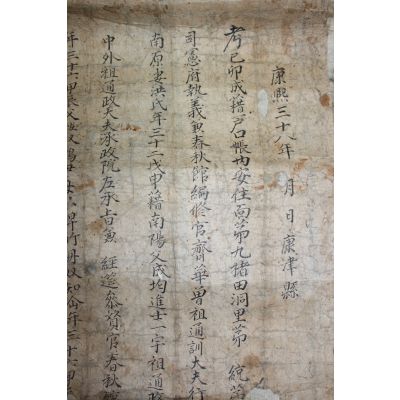 康熙三十八年 月 日康津縣
考己卯成籍戶口帳內安住面第九堵田洞里第 統第
司憲府執義兼春秋館編修官齊華曾祖通訓大夫行
南原妻洪氏年三十二戊申籍南陽父成均進士一宇祖通政
中外祖通政大夫承政院左承旨兼 經筵參贊官春秋館
年三十六甲辰父